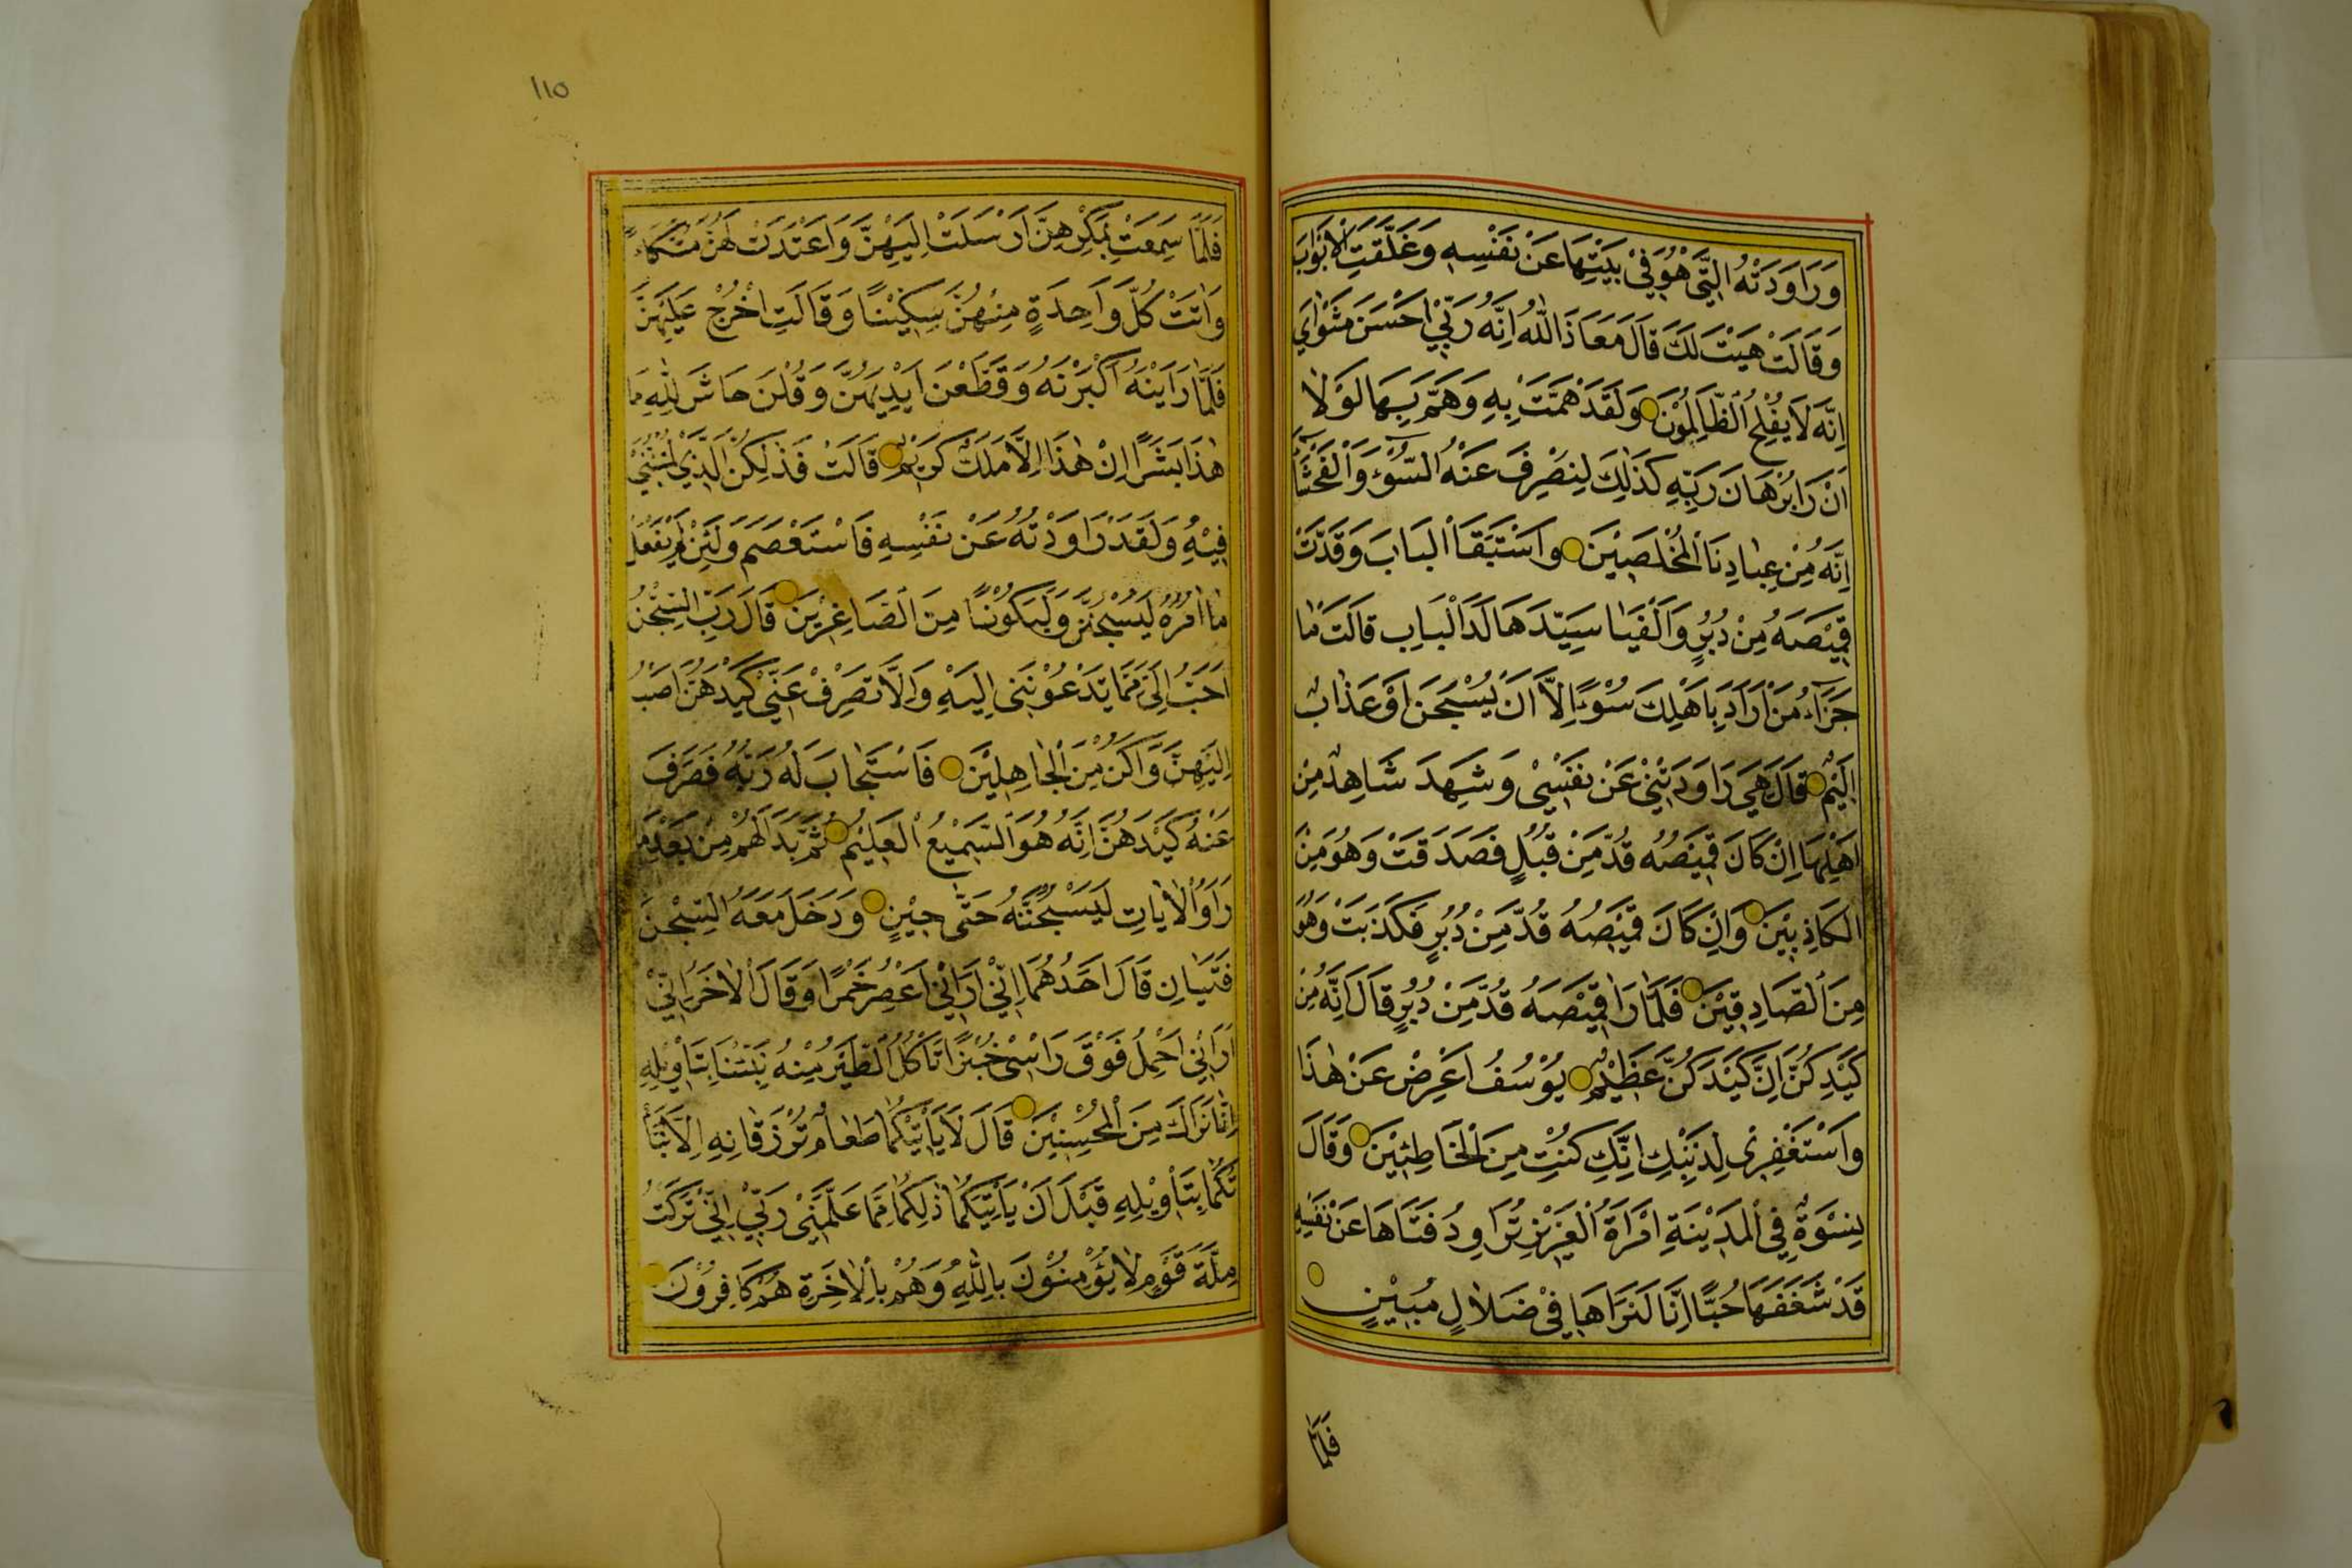 وَرَاوَدَتْهُ الَّتِي هُوَ فِيْ بَيْتِهَا عَنْ نَفْسِهِ وَغَلَّقَتِ الْاَبْوَابَ
وَقَالَتْ هَيْتَ لَكَ قَالَ مَعَاذَ اللّٰهِ اِنَّهُ رَبِّيْ اَحْسَنَ مَثْوَايَ
اِنَّهُ لَا يُفْلِحُ الظَّالِمُوْنَ وَلَقَدْ هَمَّتْ بِهِ وَهَمَّ بِهَا لَوْلَا
اَنْ رَاٰ بُرْهَانَ رَبِّهِ كَذٰلِكَ لِنَصْرِفَ عَنْهُ السُّوْٓءَ وَالْفَحْشَآءَ
اِنَّهُ مِنْ عِبَادِنَا الْمُخْلَصِيْنَ وَاسْتَبَقَا الْبَابَ وَقَدَّتْ
قَمِيْصَهُ مِنْ دُبُرٍ وَاَلْفَيَا سَيِّدَهَا لَدَا الْبَابِ قَالَتْ مَا
جَزَآءُ مَنْ اَرَادَ بِاَهْلِكَ سُوْٓءًا اِلَّا اَنْ يُسْجَنَ اَوْ عَذَابٌ
اَلِيْمٌ قَالَ هِيَ رَاوَدَتْنِيْ عَنْ نَفْسِيْ وَشَهِدَ شَاهِدٌ مِنْ
اَهْلِهَا اِنْ كَانَ قَمِيْصُهُ قُدَّ مِنْ قُبُلٍ فَصَدَقَتْ وَهُوَ مِنَ
الْكَاذِبِيْنَ وَاِنْ كَانَ قَمِيْصُهُ قُدَّ مِنْ دُبُرٍ فَكَذَبَتْ وَهُوَ
مِنَ الصَّادِقِيْنَ فَلَمَّا رَاٰ قَمِيْصَهُ قُدَّ مِنْ دُبُرٍ قَالَ اِنَّهُ مِنْ
كَيْدِكُنَّ اِنَّ كَيْدَكُنَّ عَظِيْمٌ يُوْسُفُ اَعْرِضْ عَنْ هٰذَا
وَاسْتَغْفِرِيْ لِذَنْبِكِ اِنَّكِ كُنْتِ مِنَ الْخَاطِئِيْنَ وَقَالَ
نِسْوَةٌ فِي الْمَدِيْنَةِ امْرَاَةُ الْعَزِيْزِ تُرَاوِدُ فَتَاهَا عَنْ نَفْسِهِ
قَدْ شَغَفَهَا حُبًّا اِنَّا لَنَرَاهَا فِيْ ضَلَالٍ مُبِيْنٍ
فَلَمَّا
١١٥
فَلَمَّا سَمِعَتْ بِمَكْرِهِنَّ اَرْسَلَتْ اِلَيْهِنَّ وَاَعْتَدَتْ لَهُنَّ مُتَّكَاءً
وَاٰتَتْ كُلَّ وَاحِدَةٍ مِنْهُنَّ سِكِّيْنًا وَقَالَتِ اخْرُجْ عَلَيْهِنَّ
فَلَمَّا رَاَيْنَهُ اَكْبَرْنَهُ وَقَطَّعْنَ اَيْدِيَهُنَّ وَقُلْنَ حَاشَ لِلّٰهِ مَا
هٰذَا بَشَرًا اِنْ هٰذَا اِلَّا مَلَكٌ كَرِيْمٌ قَالَتْ فَذٰلِكُنَّ الَّذِيْ لُمْتُنَّنِيْ
فِيْهِ وَلَقَدْ رَاوَدْتُهُ عَنْ نَفْسِهِ فَاسْتَعْصَمَ وَلَئِنْ لَمْ يَفْعَلْ
مَا اٰمُرُهُ لَيُسْجَنَنَّ وَلَيَكُوْنًا مِنَ الصَّاغِرِيْنَ قَالَ رَبِّ السِّجْنُ
اَحَبُّ اِلَيَّ مِمَّا يَدْعُوْنَنِيْ اِلَيْهِ وَاِلَّا تَصْرِفْ عَنِّيْ كَيْدَهُنَّ اَصْبُ
اِلَيْهِنَّ وَاَكُنْ مِنَ الْجَاهِلِيْنَ فَاسْتَجَابَ لَهُ رَبُّهُ فَصَرَفَ
عَنْهُ كَيْدَهُنَّ اِنَّهُ هُوَ السَّمِيْعُ الْعَلِيْمُ ثُمَّ بَدَا لَهُمْ مِنْ بَعْدِ مَا
رَاَوُا الْاٰيَاتِ لَيَسْجُنُنَّهُ حَتّٰى حِيْنٍ وَدَخَلَ مَعَهُ السِّجْنَ
فَتَيَانِ قَالَ اَحَدُهُمَا اِنِّيْ اَرَانِيْ اَعْصِرُ خَمْرًا وَقَالَ الْاٰخَرُ اِنِّيْ
اَرَانِيْ اَحْمِلُ فَوْقَ رَاْسِيْ خُبْزًا تَاْكُلُ الطَّيْرُ مِنْهُ نَبِّئْنَا بِتَاْوِيْلِهِ
اِنَّا نَرَاكَ مِنَ الْمُحْسِنِيْنَ قَالَ لَا يَاْتِيْكُمَا طَعَامٌ تُرْزَقَانِهِ اِلَّا نَبَّاْ
تُكُمَا بِتَاْوِيْلِهِ قَبْلَ اَنْ يَاْتِيَكُمَا ذٰلِكُمَا مِمَّا عَلَّمَنِيْ رَبِّيْ اِنِّيْ تَرَكْتُ
مِلَّةَ قَوْمٍ لَا يُؤْمِنُوْنَ بِاللّٰهِ وَهُمْ بِالْاٰخِرَةِ هُمْ كَافِرُوْنَ